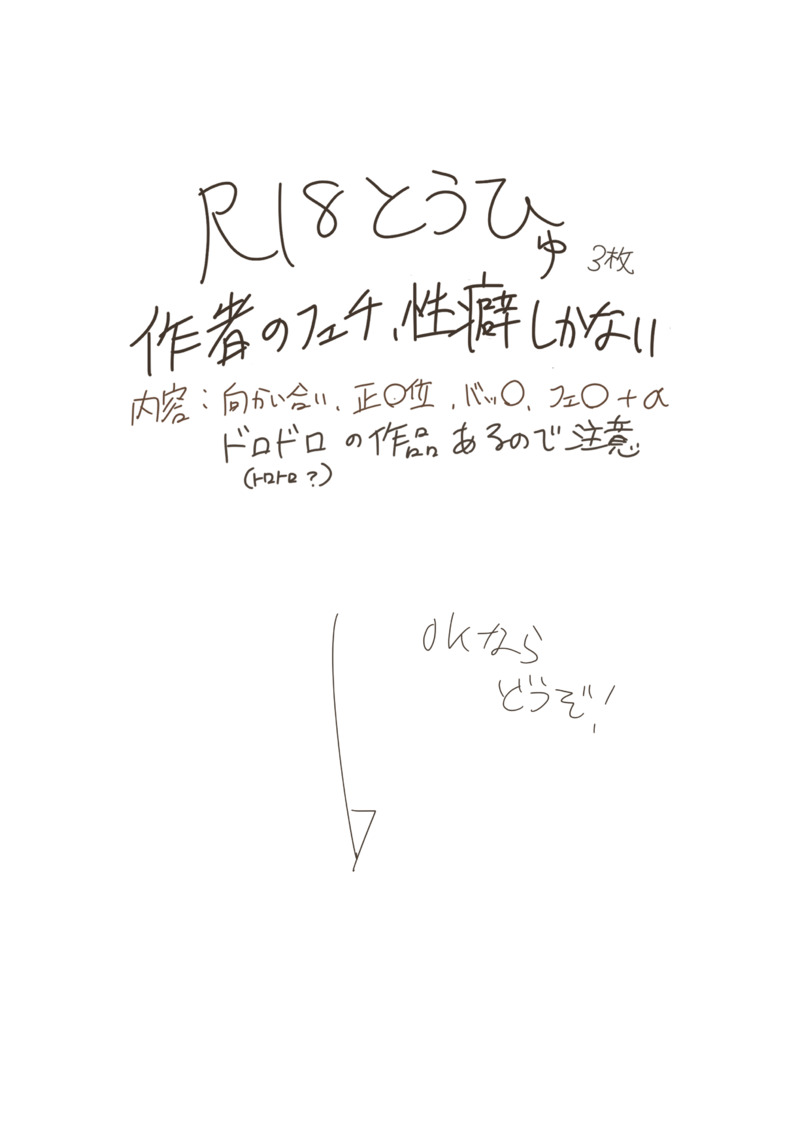 R18とうひゅ 3枚
作者のフェチ、性癖しかない
内容：向かい合い、正〇位、バッ〇、フェ〇+α
ドロドロの作品あるので注意
(トロトロ？)
OKなら
どうぞ!